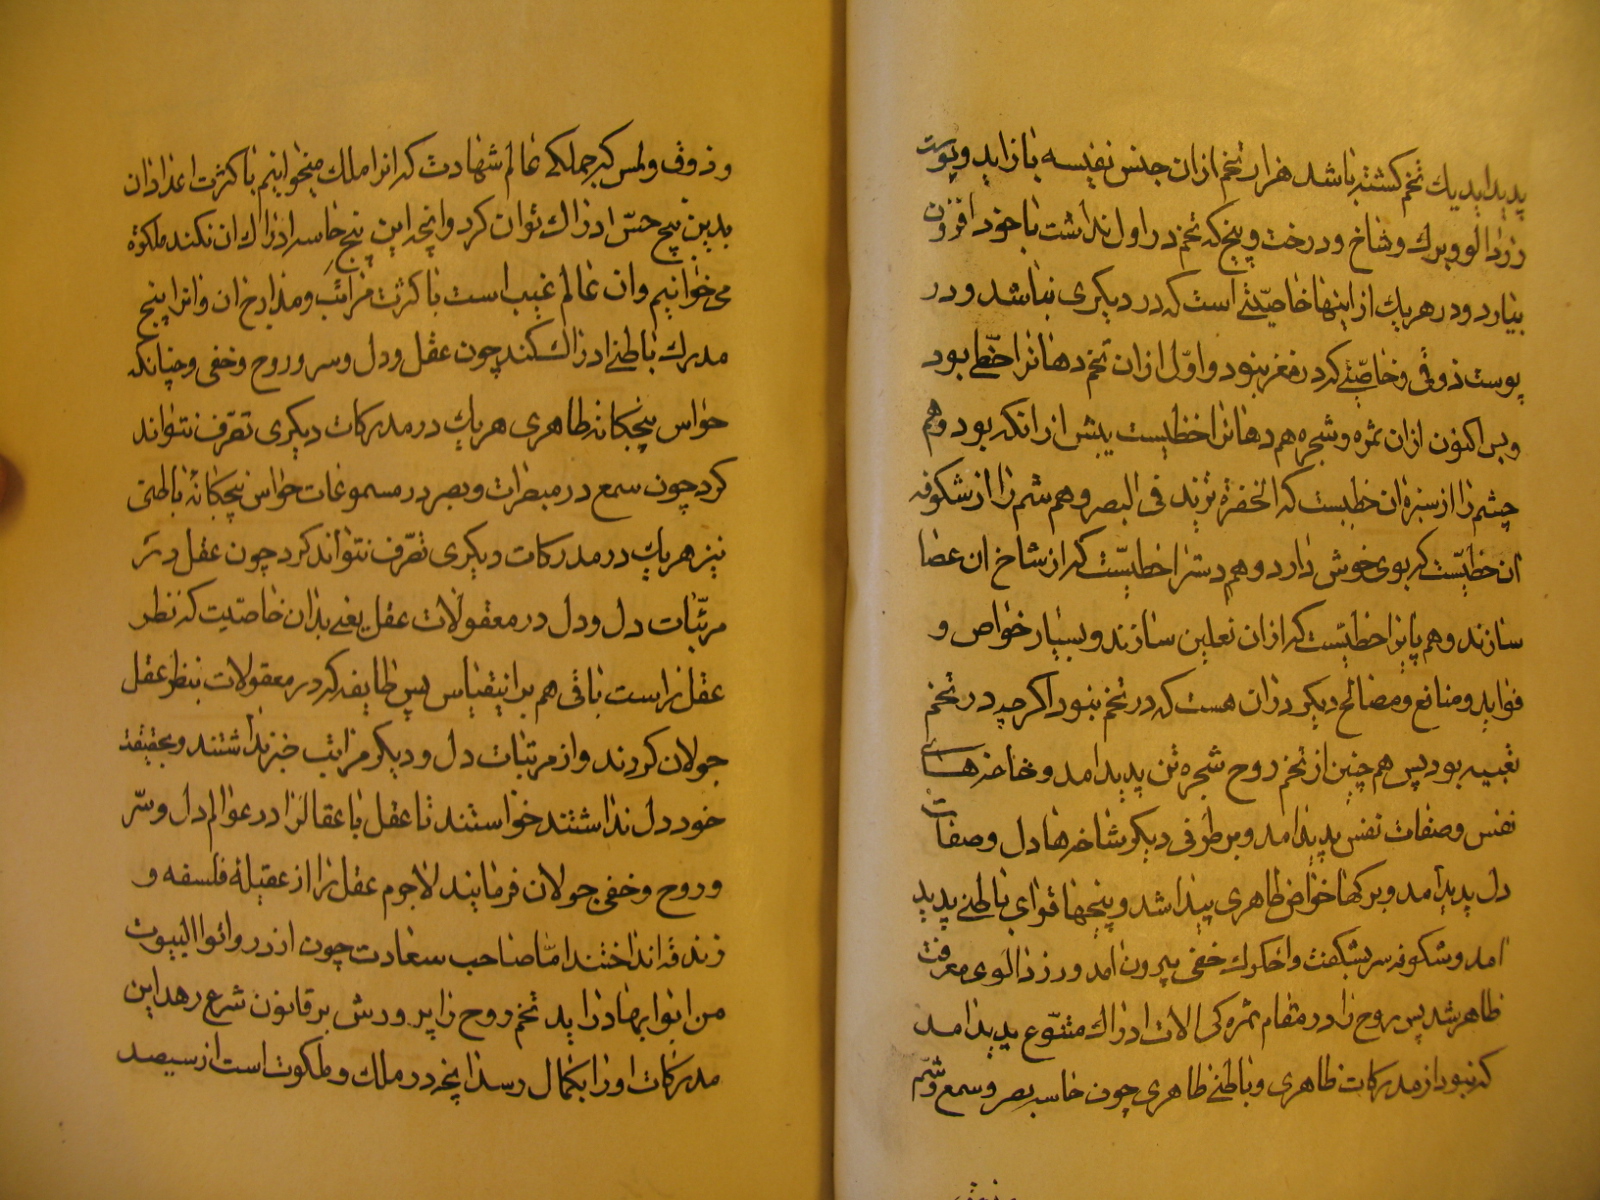 پدید اید یك تخم كشته باشد هزار تخم ازان جنس نفیسه باز اید و پوست
زردالو و برك و شاخ و درخت و بیخ كه تخم در اول نداشت با خود افزون
بیارد و در هر یك از اینها خاصیتی است كه در دیكری نباشد و در
پوست ذوقی و خاصیتی كه در مغز نبود و اول ازان تخم دهانرا حظی بود
و بس اكنون ازان ثمره و شجره هم دهانرا حظیست بیش ازانكه بود و هم
چشم را از سبزه ان حظیست كه الخضرة تزید فی البصر و هم شم را از شكوفه
ان حظیست كه بوی خوش دارد و هم دسترا حظیست كه از شاخ ان عصا
سازند و هم پایرا حظیست كه ازان نعلین سازند و بسیار خواص و
فواید و منافع و مصالح دیكر دران هست كه در تخم نبود اكرچه در تخم
تعبیه بود پس هم چنین از تخم روح شجره تن پدید امد و شاخهاء
نفس و صفات نفس پدید امد و بر طرفی دیكر شاخها دل و صفات
دل پدید امد و بركها خواص ظاهری پیدا شد و بیخها قوای باطنی پدید
امد و شكوفه سر بشكفت و اخكوك خفی بیرون امد و زردالوی معرفت
ظاهر شد پس روح را در مقام ثمره كی الات ادراك متنوع پدید امد
كه نبود از مدركات ظاهری و باطنی ظاهری چون حاسه بصر و سمع و شم
و ذوق و لمس كه جملكی عالم شهادت كه انرا ملك میخوانیم با كثرت اعداد ان
بدین پنج حس ادراك توان كرد و انچه این پنج حاسه ادراك ان نكند ملكوة
می خوانیم و ان عالم غیب است با كثرت مراتب و مدارج ان و انرا پنج
مدرك باطنی ادراك كند چون عقل و دل و سر و روح و خفی و چنانكه
حواس پنجكانه ظاهری هر یك در مدركات دیكری تصرف نتواند
كرد چون سمع در مبصرات و بصر در مسموعات حواس پنجكانه باطنی
نیز هر یك در مدركات دیكری تصرف نتواند كرد چون عقل در
مرئیات دل و دل در معقولات عقل یعنی بدان خاصیت كه نظر
عقل راست باقی هم برانیقیاس پس طایفه كه در معقولات بنظر عقل
جولان كردند و از مرئیات دل و دیكر مراتب خبر نداشتند و بحقیقت
خود دل نداشتند خواستند تا عقل با عقال را در عوالم دل و سر
و روح و خفی جولان فرمایند لاجرم عقل را از عقیلهٔ فلسفه و
زندقه انداختند اما صاحب سعادت چون از در واتوا البیوت
من ابوابها دراید تخم روح را پرورش بر قانون شرع دهد این
مدركات او را بكمال رسد انچه در ملك و ملكوت است از سیصد